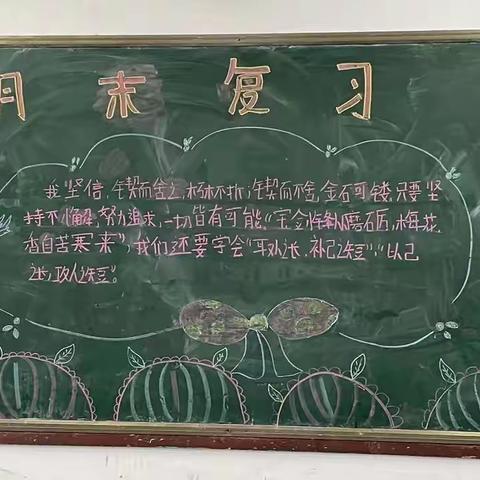 月末复习
我坚信，锲而舍之，朽木不折；锲而不舍，金石可镂。只要坚
持不懈，努力追求，一切皆有可能。“宝剑锋从磨砺，梅花
香自苦寒来”，我们还要学会“取人长，补己短”，“以己
长，攻人短”。